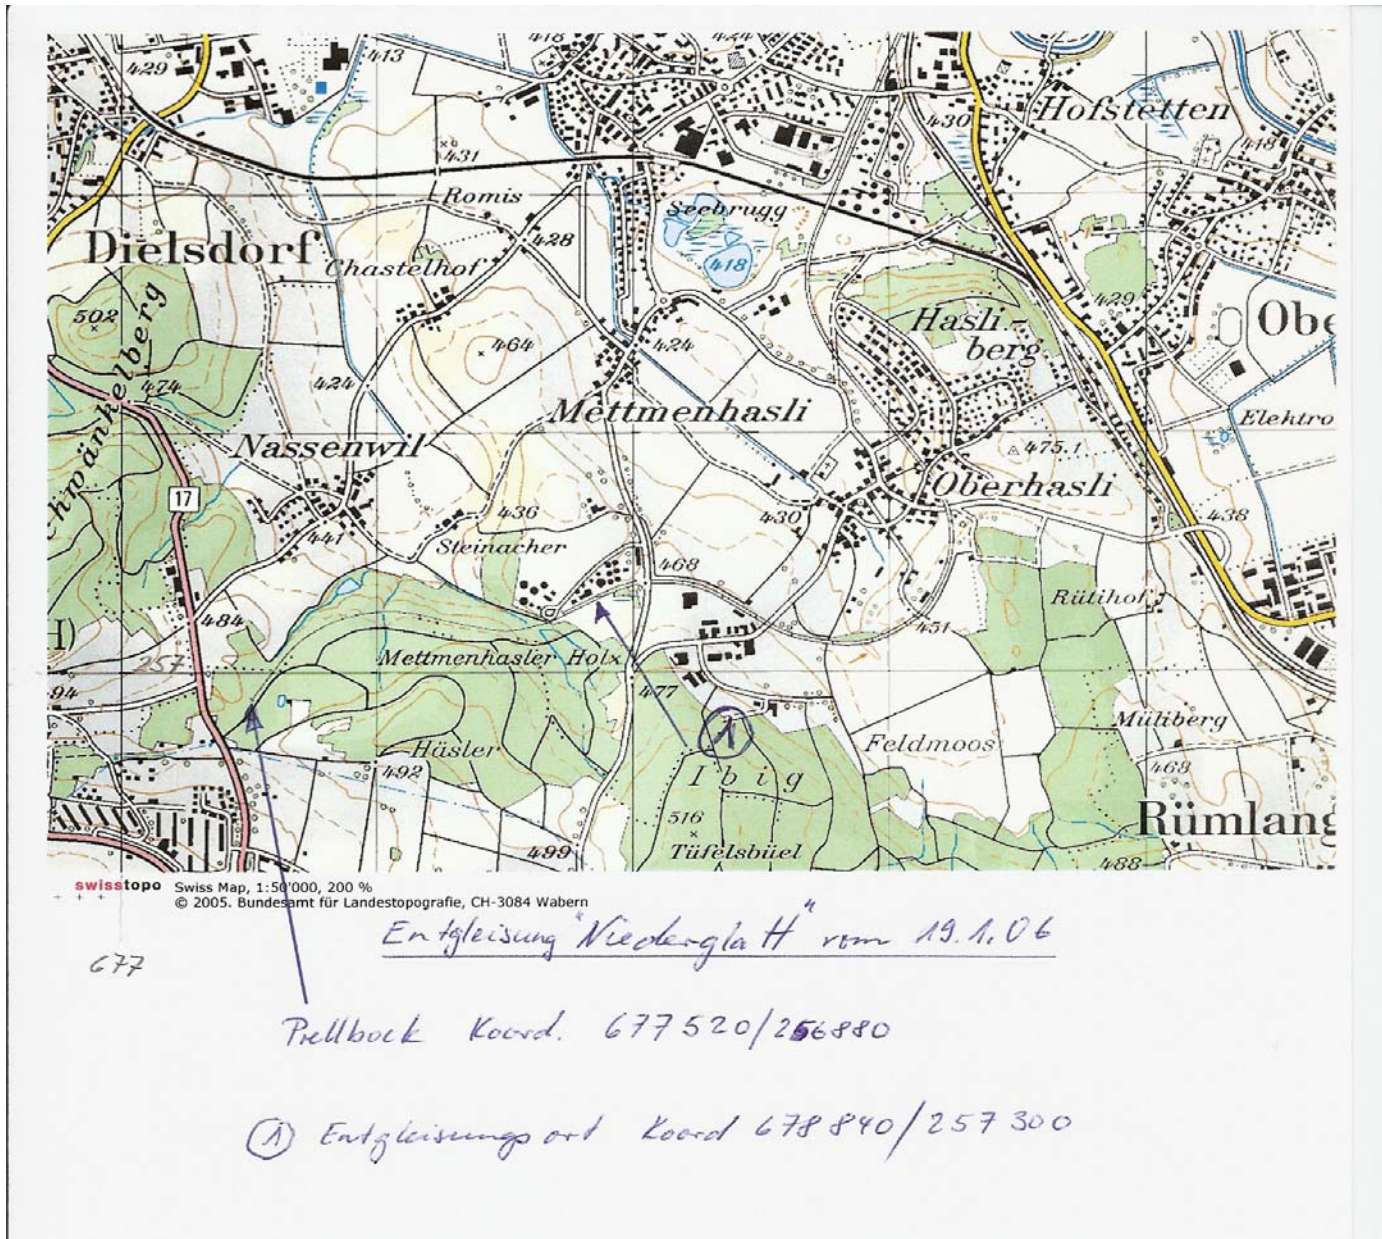 418
424
429
413
Hofstetten
430
418
431
Romis
Seebrugg
428
Dielsdorf
Chastelhof
418
502
429
Hasli-
berg
Obe
464
424
474
424
Mettmenhasli
Elektro
Nassenwil
475.1
17
Oberhasli
436
430
438
441
Steinacher
468
Rütihof
484
451
H)
chwänkelberg
257
Mettmenhasler Holz
94
477
1
Müliberg
Häsler
Feldmoos
492
Ibig
468
516
Rümlang
499
Tüfelsbüel
488
swisstopo Swiss Map, 1:50'000, 200 %
© 2005. Bundesamt für Landestopografie, CH-3084 Wabern
Entgleisung "Niederglatt" vom 19.1.06
677
Prellbock Koord. 677520/256880
1 Entgleisungsort Koord 678840/257300